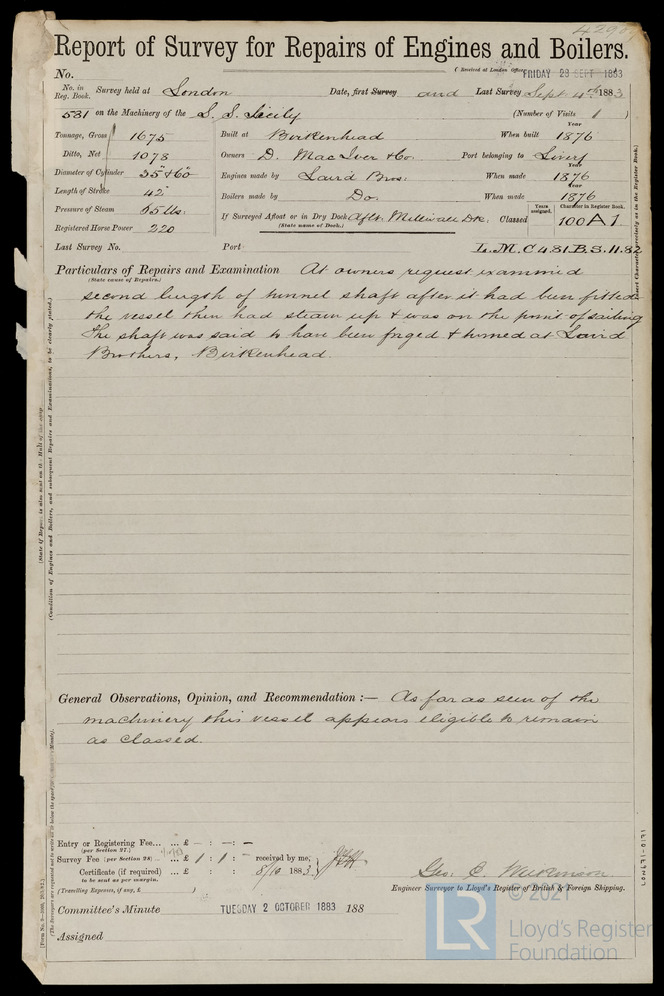 4290
Report of Survey for Repairs of Engines and Boilers.
(Received at London Office FRIDAY 28 SEPT 1883
No.
No. in Reg. Book. Survey held at London Date, first Survey and Last Survey Sept 4th 1883
531 on the Machinery of the S. S. Sicily (Number of Visits 1 )
Tonnage, Gross 1675 Built at Birkenhead When built Year 1876
Ditto, Net 1078 Owners D. MacIver & Co. Port belonging to Liverp
Diameter of Cylinder 35" & 60" Engines made by Laird Bros: When made Year 1876
Length of Stroke 42" Boilers made by Do. When made Year 1876
Pressure of Steam 65 lbs: If Surveyed Afloat or in Dry Dock Aflt. Millwall Dk. Classed Years assigned. Character in Register Book. 100 A 1.
(State name of Dock.)
Registered Horse Power 220
Last Survey No. Port L.M.C 4.81. B.S. 11.82
Particulars of Repairs and Examination At owners request examined
(State cause of Repairs.)
second length of tunnel shaft after it had been fitted
the vessel then had steam up & was on the point of sailing
The shaft was said to have been forged & turned at Laird
Brothers, Birkenhead.
General Observations, Opinion, and Recommendation :— As far as seen of the
machinery this vessel appears eligible to remain
as classed.
Entry or Registering Fee... ... £ - : - : -
(per Section 27.)
Survey Fee (per Section 28) ... £ 1 : 1 : - received by me,
Certificate (if required) ... £ : : 8/10 1883
to be sent as per margin.
(Travelling Expenses, if any, £ )
Geo: C.
Engineer Surveyor to Lloyd's Register of British & Foreign Shipping.
Committee's Minute TUESDAY 2 OCTOBER 1883 188
Assigned
(State if Report is also sent on the Hull of the ship
(Condition of Engines and Boilers, and subsequent Repairs and Examinations, to be clearly stated.)
LON671-0171
© 2021
LR
Lloyd's Register
Foundation